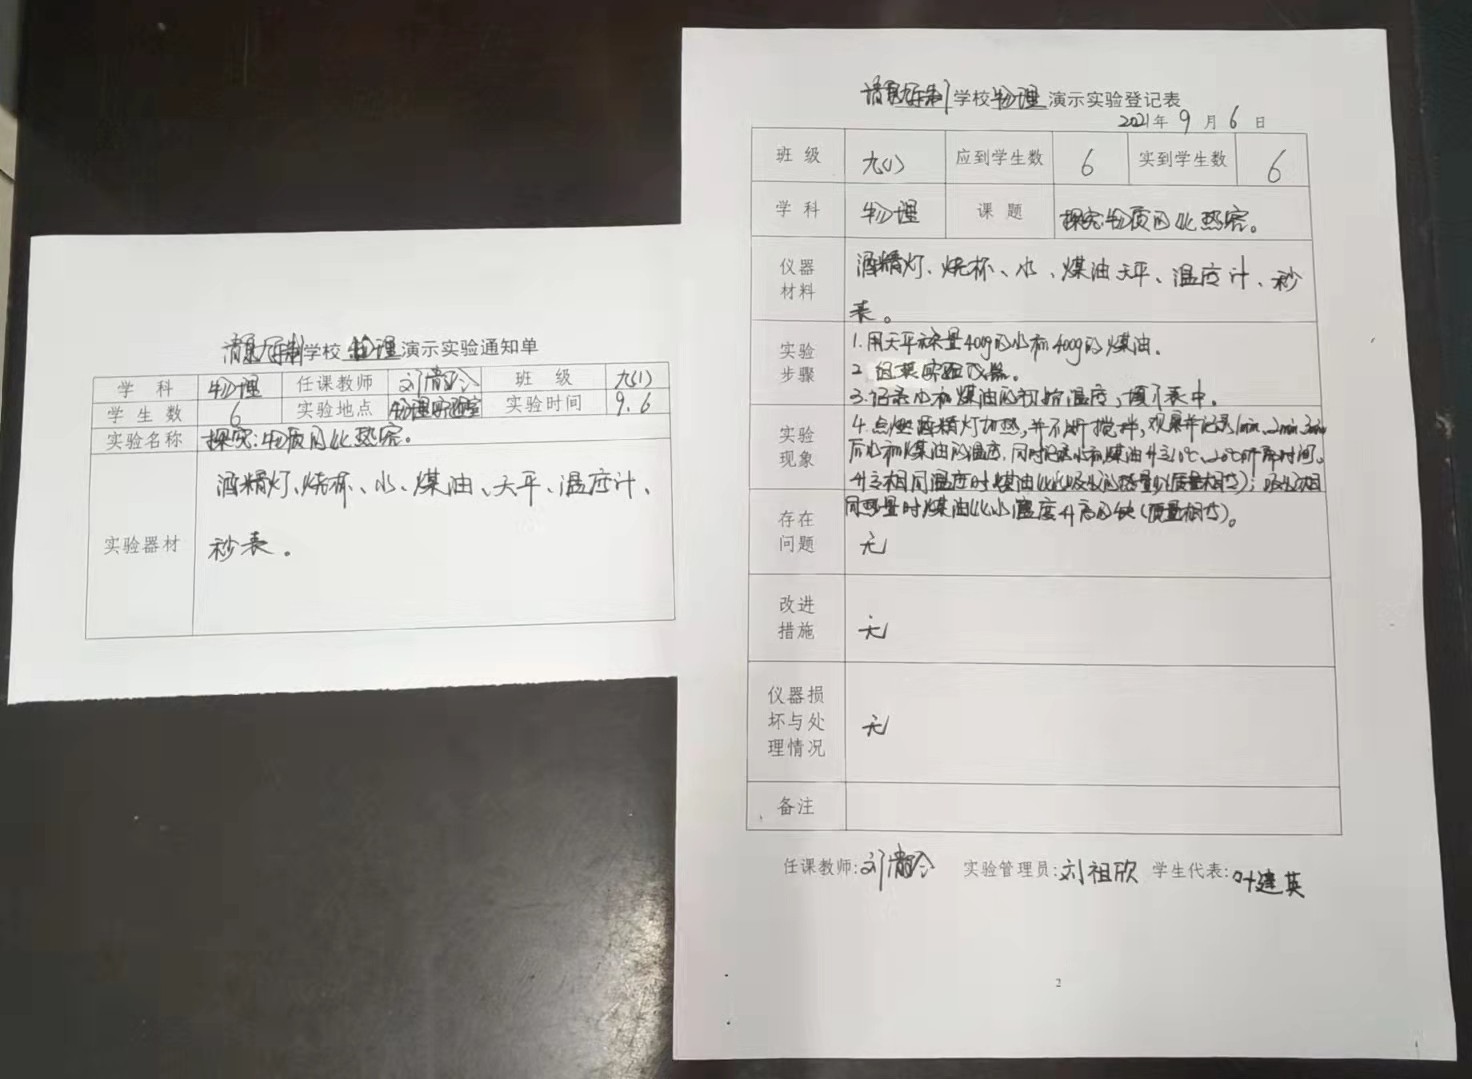 学校物理演示实验通知单
学科 物理 任课教师 班级 九(1)
学生数 6 实验地点 物理实验室 实验时间 9.6
实验名称 探究:物质的比热容。
实验器材 酒精灯、烧杯、水、煤油、天平、温度计、
秒表。
学校物理演示实验登记表
2021年9月6日
班级 九(1) 应到学生数 6 实到学生数 6
学科 物理 课题 探究:物质的比热容。
仪器材料 酒精灯、烧杯、水、煤油天平、温度计、秒
表。
实验步骤 1.用天平称量400g的水和400g的煤油。
2.组装实验仪器。
3.记录水和煤油的初始温度,填入表中。
实验现象 4.点燃酒精灯加热,并不断搅拌,观察并记录1min、2min、3min
后水和煤油的温度,同时记录水和煤油升高10℃、20℃所需时间。
升高相同温度时煤油比水吸收的热量少(质量相等);吸收相
同热量时煤油比水温度升高的快(质量相等)。
存在问题 无
改进措施 无
仪器损坏与处理情况 无
备注
任课教师: 实验管理员:刘祖欣 学生代表:叶建英
2